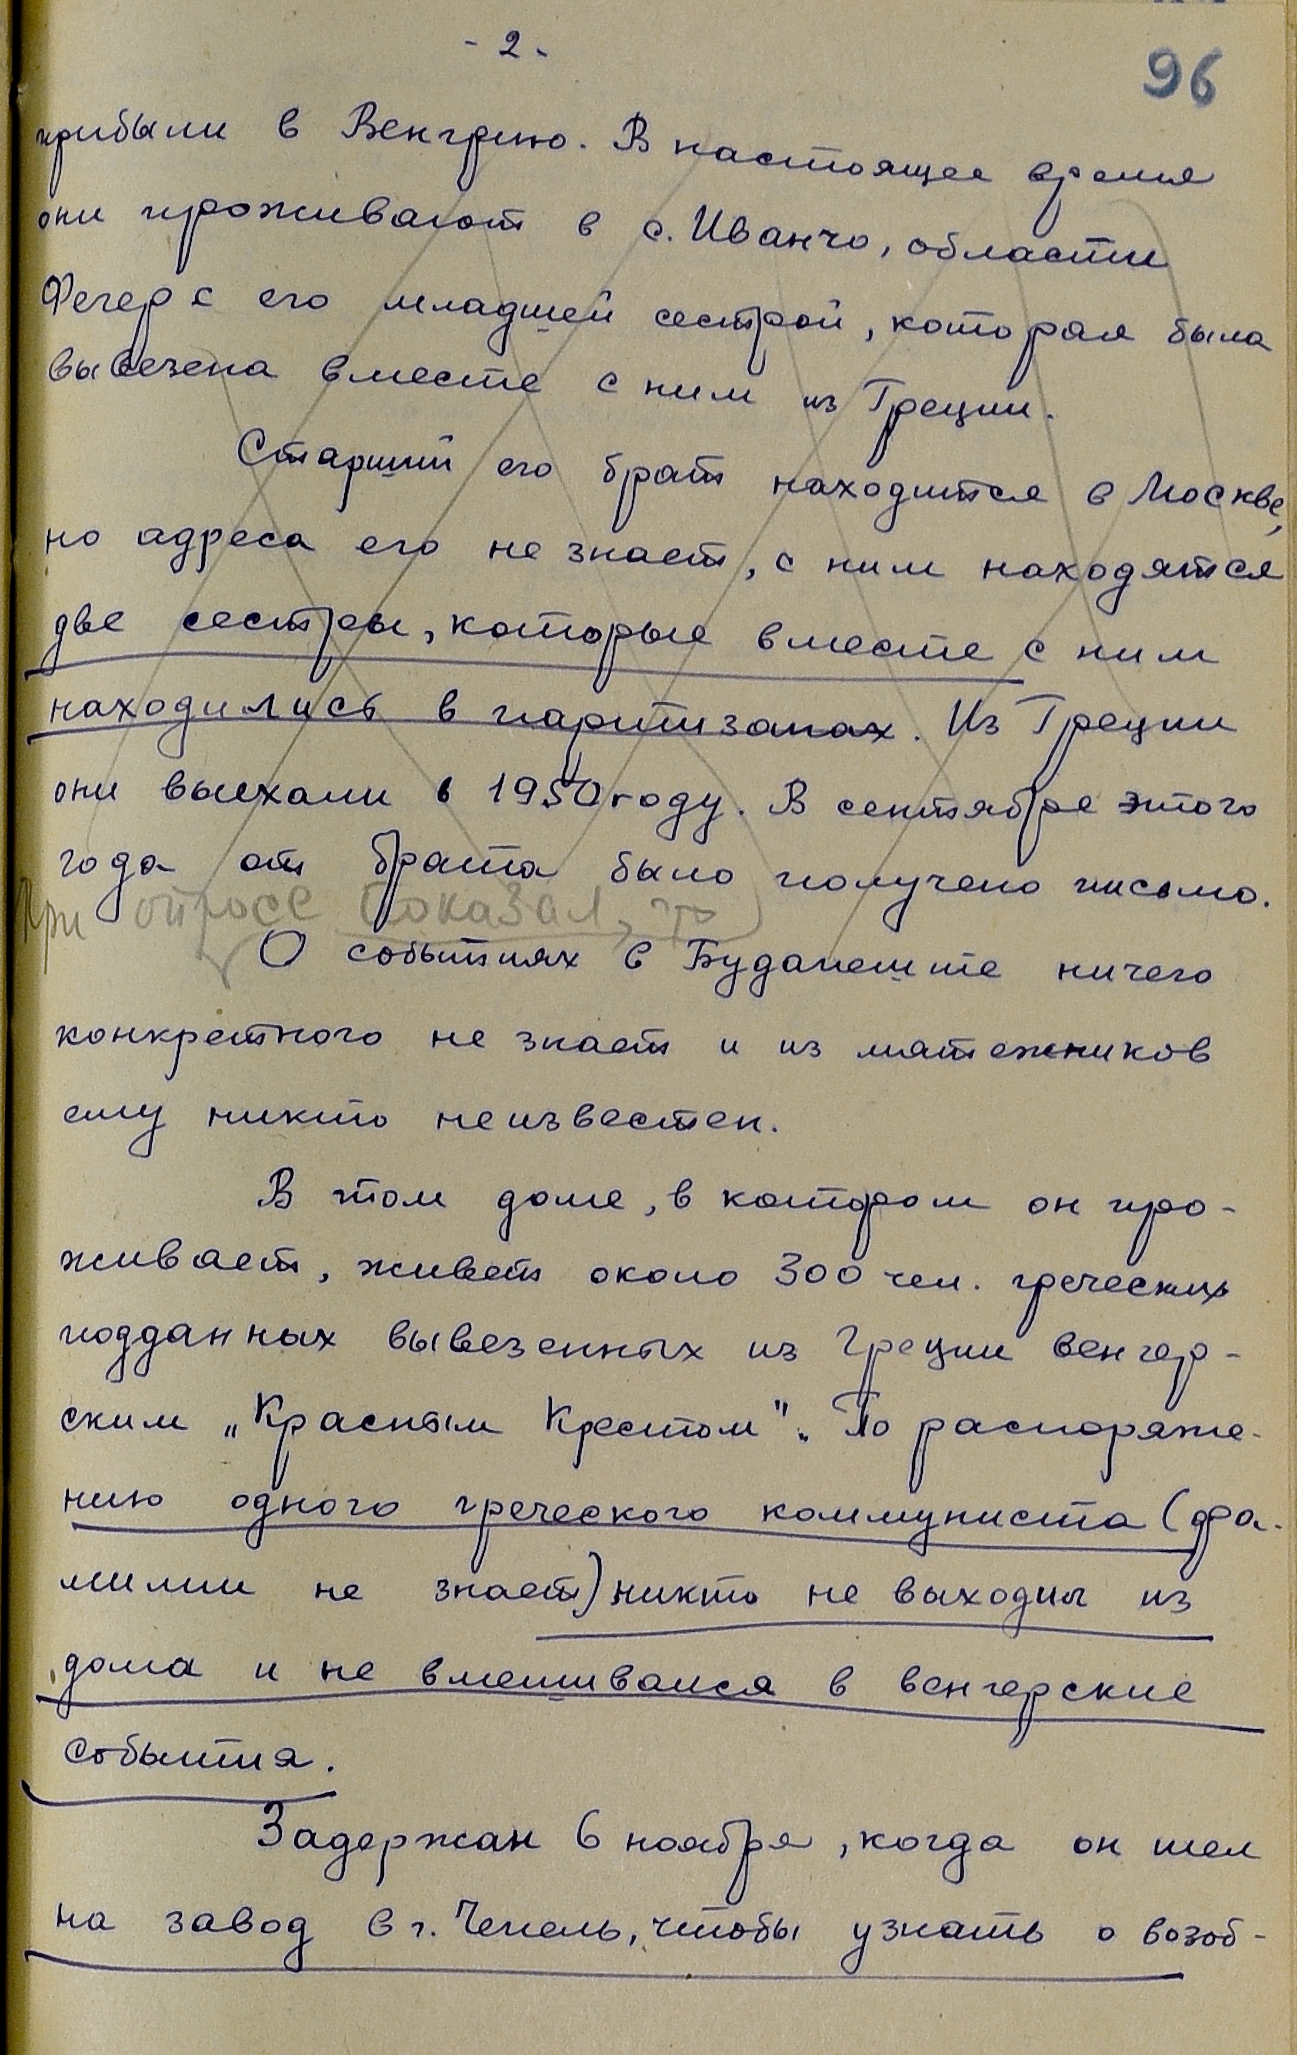 - 2 -
96
прибыли в Венгрию. В настоящее время
они проживают в с. Иванчо, области
Фегер с его младшей сестрой, которая была
вывезена вместе с ним из Греции.
Старший его брат находится в Москве,
но адреса его не знает, с ним находятся
две сестры, которые вместе с ним
находились в партизанах. Из Греции
они выехали в 1950 году. В сентябре этого
года от брата было получено письмо.
При опросе показал, что
О событиях в Будапеште ничего
конкретного не знает и из мятежников
ему никто неизвестен.
В том доме, в котором он про-
живает, живет около 300 чел. греческих
подданных вывезенных из Греции венгер-
ским „Красным Крестом". По распоряже-
нию одного греческого коммуниста (фа-
милии не знает) никто не выходил из
дома и не вмешивался в венгерские
события.
Задержан 6 ноября, когда он шел
на завод в г. Чепель, чтобы узнать о возоб-